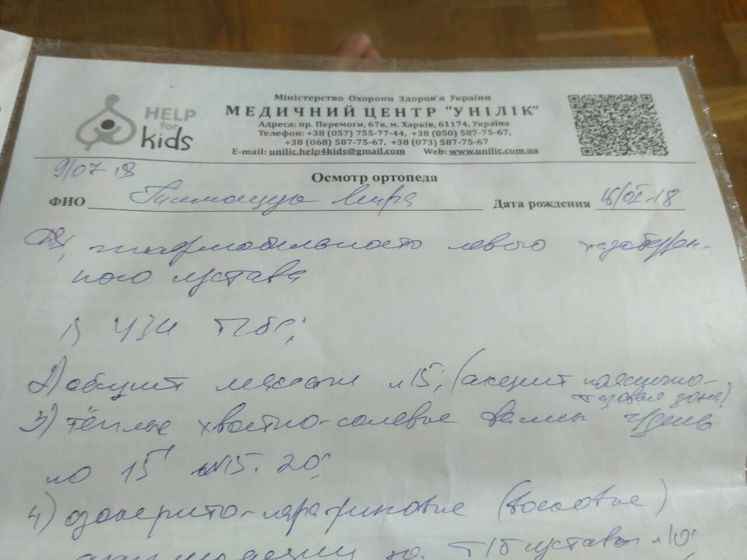 HELP
for
kids
Міністерство Охорони Здоров'я України
МЕДИЧНИЙ ЦЕНТР "УНІЛІК"
Адреса: пр. Перемоги, 67в, м. Харків, 61174, Україна
Телефон: +38 (057) 755-77-44, +38 (050) 587-75-67,
+38 (068) 587-75-67, +38 (073) 587-75-67
E-mail: unilic.help4kids@gmail.com Web: www.unilic.com.ua
9/07 18
Осмотр ортопеда
ФИО Дата рождения
левого тазобедрен-
ного сустава
1) УЗИ ТБС;
2) общий массаж №15; (акцент пояснично-
тазовая зона)
3) тёплые хвойно-солевые ванны ч/день
по 15' №15-20;
4) озокерито-парафиновые (восковые)
аппликации на Т/б суставы №10